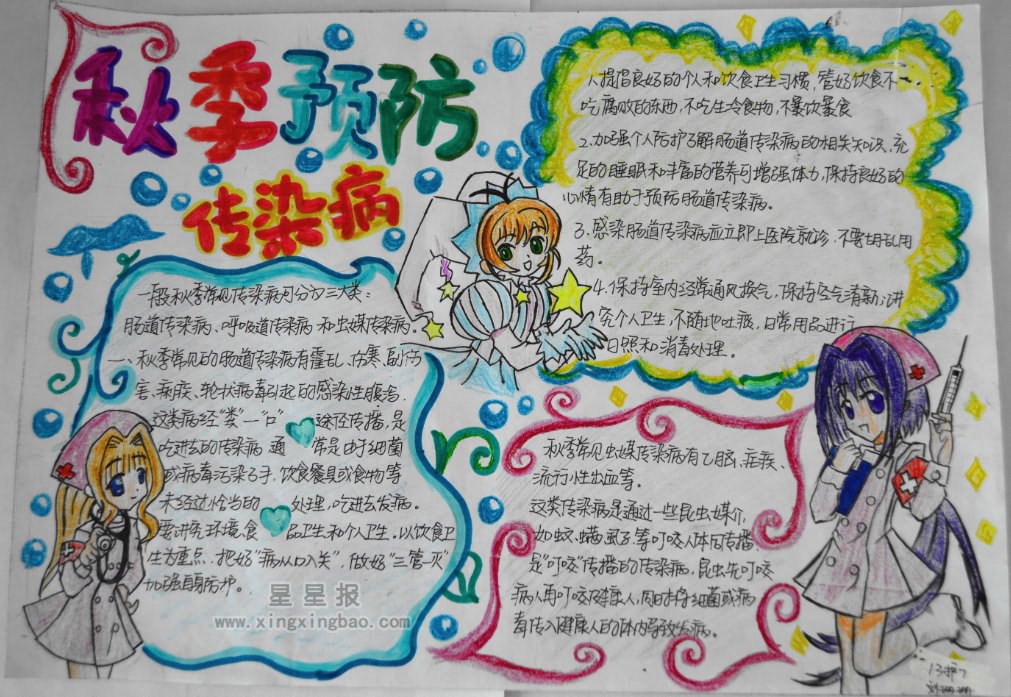 秋季预防
传染病
一般秋季常见传染病可分为三大类：
肠道传染病、呼吸道传染病和虫媒传染病。
一、秋季常见的肠道传染病有霍乱、伤寒、副伤
害、痢疾、轮状病毒引起的感染性腹泻.
这类病经"粪"一"口"途径传播，是
吃进去的传染病 通常是由于细菌
或病毒污染了手、饮食餐具或食物等
未经过恰当的处理，吃进去发病。
要讲究环境、食品卫生和个人卫生。以饮食卫
生为重点，把好"病从口入关"，做好"三管一灭"
加强自身防护。
1.提倡良好的个人和饮食卫生习惯，管好饮食不
吃腐败的东西，不吃生冷食物，不暴饮暴食
2.加强个人防护了解肠道传染病的相关知识，充
足的睡眠和丰富的营养可增强体力，保持良好的
心情有助于预防肠道传染病。
3.感染肠道传染病应立即上医院就诊，不要胡乱用
药。
4.保持室内经常通风换气，保持空气清新；讲
究个人卫生，不随地吐痰，日常用品进行
日照和消毒处理。
秋季常见虫媒传染病有乙脑、疟疾、
流行性出血等.
这类传染病是通过一些昆虫媒介，
如蚊、螨虱子等叮咬人体而传播
是"叮咬"传播的传染病，昆虫先叮咬
病人再叮咬健康人，同时将细菌或病
毒传入健康人的体内导致发病。
星星报
www.xingxingbao.com